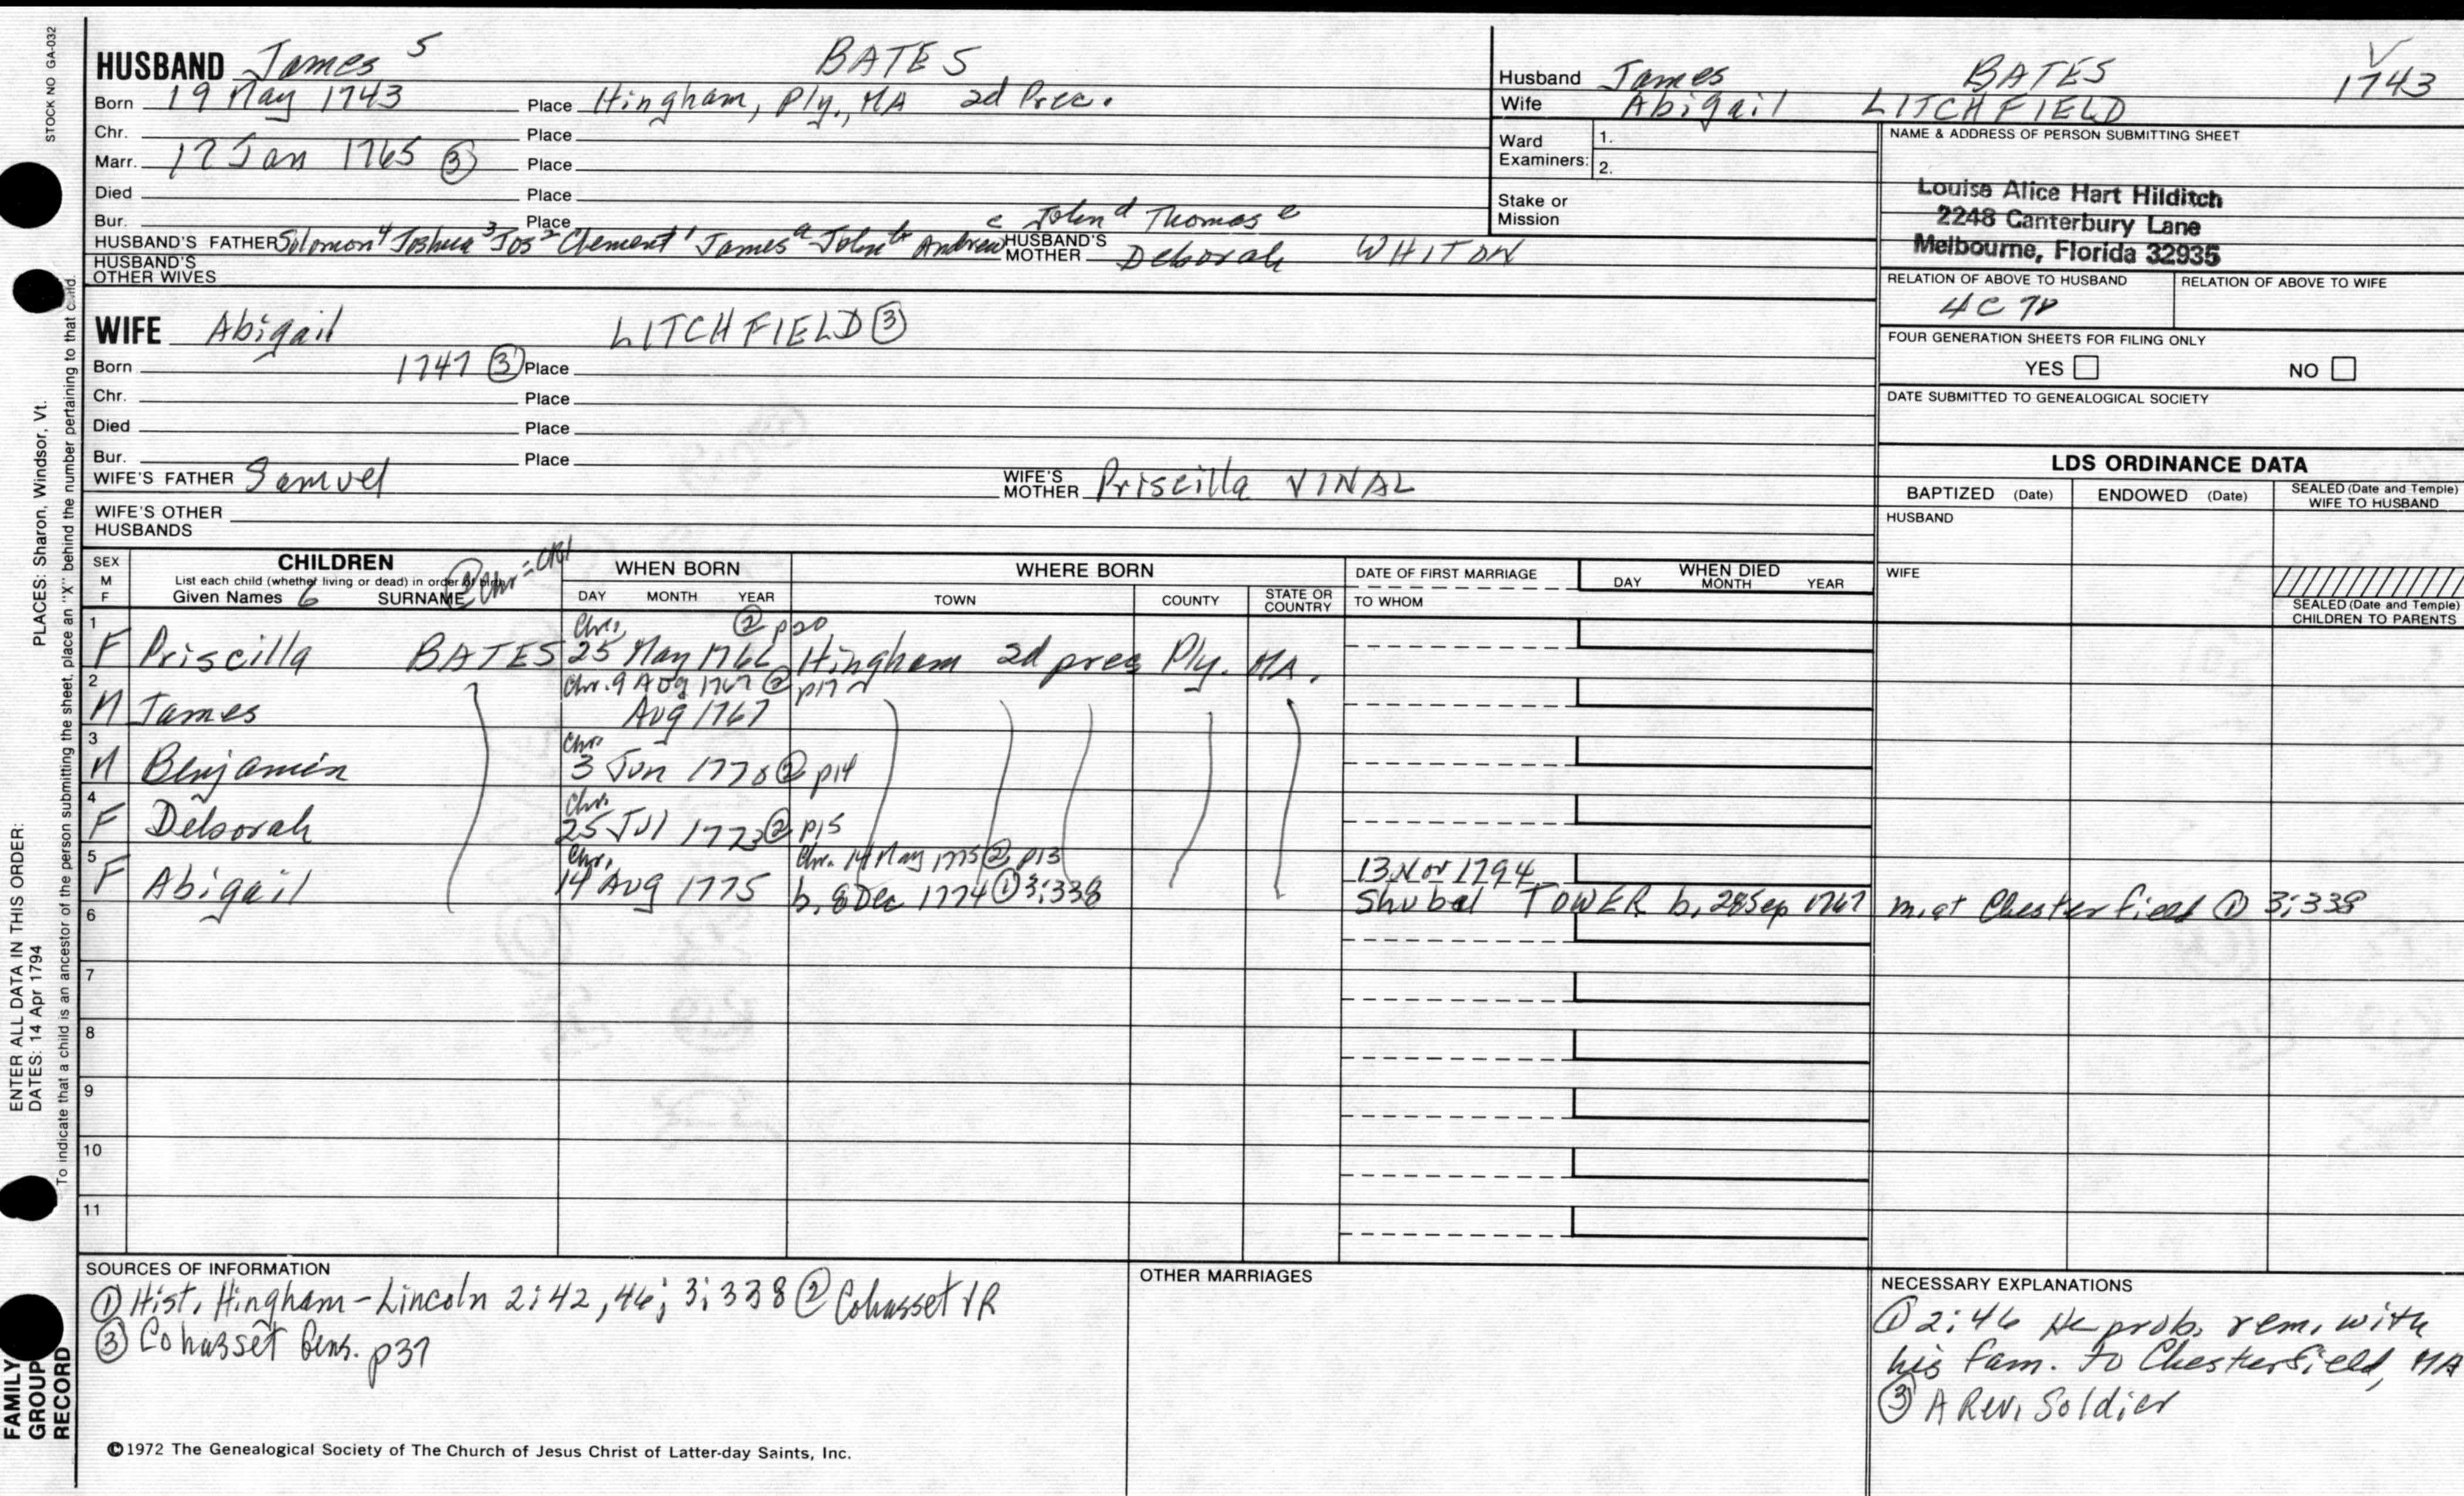 HUSBAND James 5 BATES
Born 19 May 1743 Place Hingham, Ply., MA 2d Prec.
Chr. Place
Marr. 17 Jan 1765 ③ Place
Died Place
Bur. Place
c John d Thomas e
HUSBAND'S FATHER Solomon 4 Joshua 3 Jos 2 Clement 1 James a John b Andrew HUSBAND'S MOTHER Deborah WHITON
HUSBAND'S OTHER WIVES
WIFE Abigail LITCHFIELD ③
Born 1747 ③ Place
Chr. Place
Died Place
Bur. Place
WIFE'S FATHER Samuel WIFE'S MOTHER Priscilla VINAL
WIFE'S OTHER
HUSBANDS
Husband James BATES 1743
Wife Abigail LITCHFIELD
Ward Examiners: 1.
2.
Stake or Mission
NAME & ADDRESS OF PERSON SUBMITTING SHEET
Louise Alice Hart Hilditch
2248 Canterbury Lane
Melbourne, Florida 32935
RELATION OF ABOVE TO HUSBAND RELATION OF ABOVE TO WIFE
4C 7R
FOUR GENERATION SHEETS FOR FILING ONLY
YES NO
DATE SUBMITTED TO GENEALOGICAL SOCIETY
LDS ORDINANCE DATA
BAPTIZED (Date) ENDOWED (Date) SEALED (Date and Temple) WIFE TO HUSBAND
HUSBAND
WIFE
SEALED (Date and Temple)
CHILDREN TO PARENTS
SEX M F CHILDREN WHEN BORN WHERE BORN DATE OF FIRST MARRIAGE WHEN DIED
List each child (whether living or dead) in order of birth
Given Names 6 SURNAME DAY MONTH YEAR TOWN COUNTY STATE OR COUNTRY TO WHOM DAY MONTH YEAR
② Chr = CR1
1 Chr. ② p20
F Priscilla BATES 25 May 1766 Hingham 2d prec Ply. MA.
2 Chr. 9 Aug 1767 ② p17
M James Aug 1767
3 Chr.
M Benjamin 3 Jun 1770 ② p14
4 Chr.
F Deborah 25 Jul 1773 ② p15
5 Chr. Chr. 14 May 1775 ② p13 13 Nov 1794
F Abigail 14 Aug 1775 b. 8 Dec 1774 ① 3:338 Shubal TOWER b. 28 Sep 1767 m. at Chesterfield ① 3:338
6
7
8
9
10
11
SOURCES OF INFORMATION
① Hist. Hingham - Lincoln 2:42, 46; 3:338 ② Cohasset VR
③ Cohasset Gens. p37
OTHER MARRIAGES
NECESSARY EXPLANATIONS
① 2:46 He prob. rem. with
his fam. to Chesterfield, MA
③ A Rev. Soldier
©1972 The Genealogical Society of The Church of Jesus Christ of Latter-day Saints, Inc.
STOCK NO GA-032
ENTER ALL DATA IN THIS ORDER:
DATES: 14 Apr 1794 PLACES: Sharon, Windsor, Vt.
To indicate that a child is an ancestor of the person submitting the sheet, place an "X" behind the number pertaining to that child.
FAMILY
GROUP
RECORD